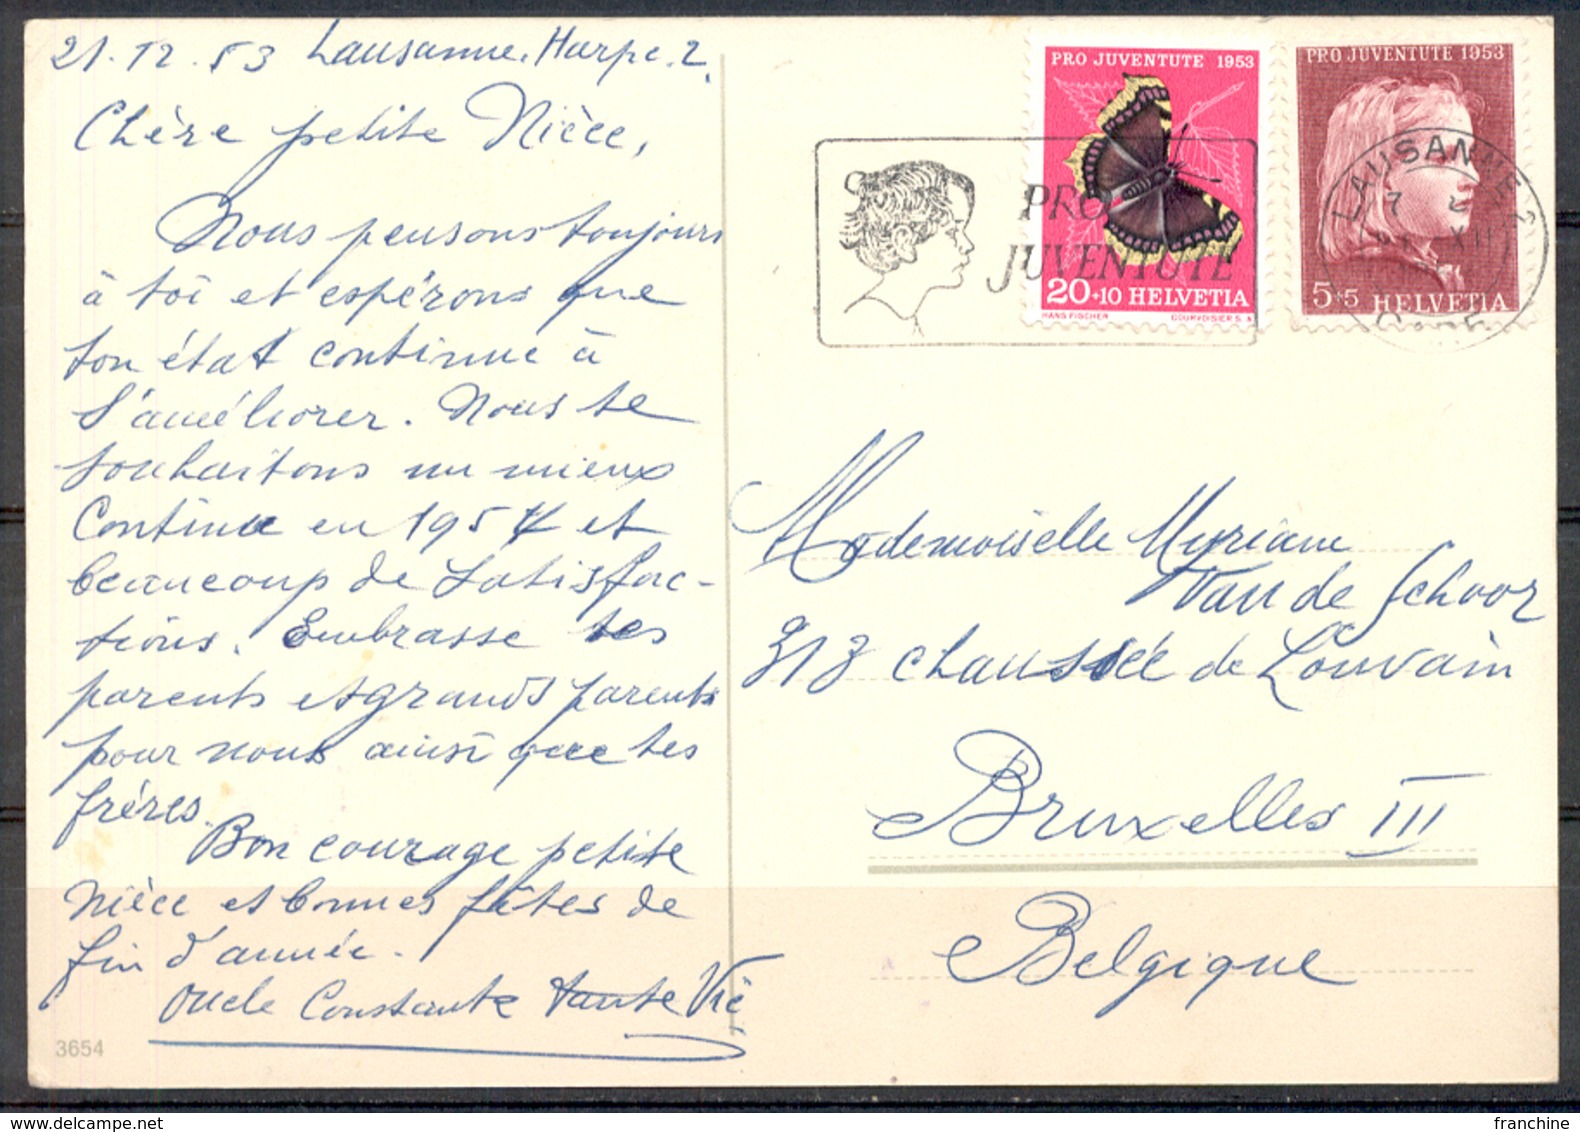 21.12.53 Lausanne. Harpe. 2.
Chère petite Nièce,
Nous pensons toujours
à toi et espérons que
ton état continue à
s'améliorer. Nous te
souhaitons un mieux
continue en 1954 et
beaucoup de satisfac-
tions. Embrasse tes
parents et grands parents
pour nous ainsi que tes
frères.
Bon courage petite
Nièce et bonnes fêtes de
fin d'année.
Oncle Constant tante Vic
3654
PRO JUVENTUTE 1953
20+10 HELVETIA
HANS FISCHER COURVOISIER S.A.
PRO JUVENTUTE 1953
5+5 HELVETIA
PRO
JUVENTUTE
LAUSANNE
XII
Mademoiselle Myriane
Van de Schoor
313 chaussée de Louvain
Bruxelles III
Belgique
franchine